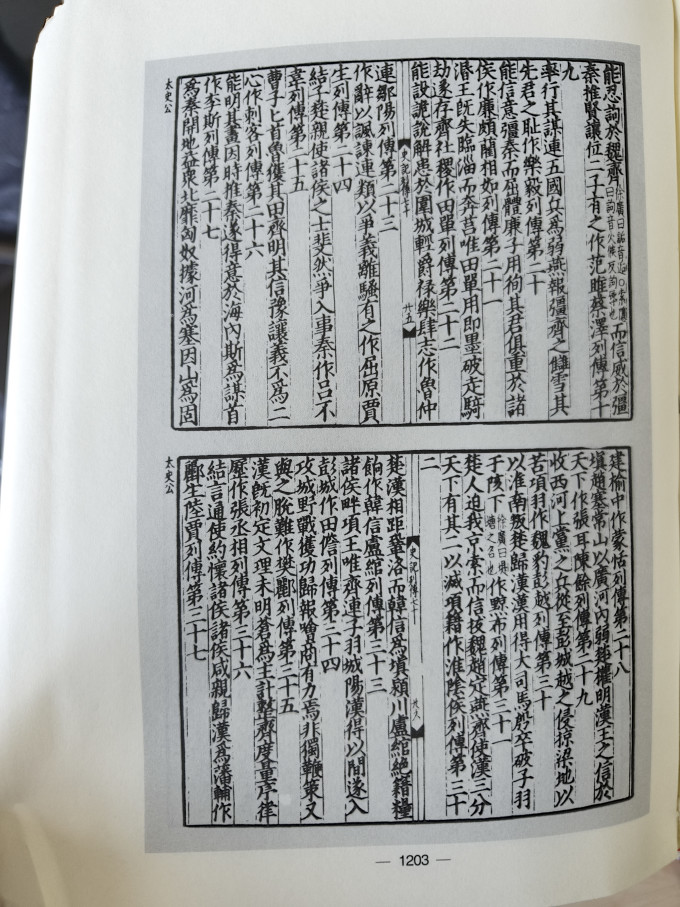 能忍訽於魏齊徐廣曰訽音逅○索隱曰訽音火候反訽辱也而信威於彊
秦推賢讓位二子有之作范睢蔡澤列傳第十
九
率行其謀連五國兵爲弱燕報彊齊之讎雪其
先君之恥作樂毅列傳第二十
能信意彊秦而屈體廉子用徇其君俱重於諸
侯作廉頗藺相如列傳第二十一
湣王既失臨淄而奔莒唯田單用即墨破走騎
劫遂存齊社稷作田單列傳第二十二
能設詭說解患於圍城輕爵祿樂肆志作魯仲
史記傳七十 廿五
連鄒陽列傳第二十三
作辭以諷諫連類以爭義離騷有之作屈原賈
生列傳第二十四
結子楚親使諸侯之士斐然爭入事秦作呂不
韋列傳第二十五
曹子匕首魯獲其田齊明其信豫讓義不爲二
心作刺客列傳第二十六
能明其畫因時推秦遂得意於海內斯爲謀首
作李斯列傳第二十七
爲秦開地益衆北靡匈奴據河爲塞因山爲固
太史公
建榆中作蒙恬列傳第二十八
塡趙塞常山以廣河內弱楚權明漢王之信於
天下作張耳陳餘列傳第二十九
收西河上黨之兵從至彭城越之侵掠梁地以
苦項羽作魏豹彭越列傳第三十
以淮南叛楚歸漢漢用得大司馬殷卒破子羽
于垓下徐廣曰堤塘之名也作黥布列傳第三十一
楚人迫我京索而信拔魏趙定燕齊使漢三分
天下有其二以滅項籍作淮陰侯列傳第三十
二
史記列傳七十 廿六
楚漢相距鞏洛而韓信爲塡潁川盧綰絕籍糧
餉作韓信盧綰列傳第三十三
諸侯畔項王唯齊連子羽城陽漢得以間遂入
彭城作田儋列傳第三十四
攻城野戰獲功歸報噲商有力焉非獨鞭策又
與之脫難作樊酈列傳第三十五
漢既初定文理未明蒼爲主計整齊度量序律
歷作張丞相列傳第三十六
結言通使約懷諸侯諸侯咸親歸漢爲藩輔作
酈生陸賈列傳第三十七
太史公
— 1203 —